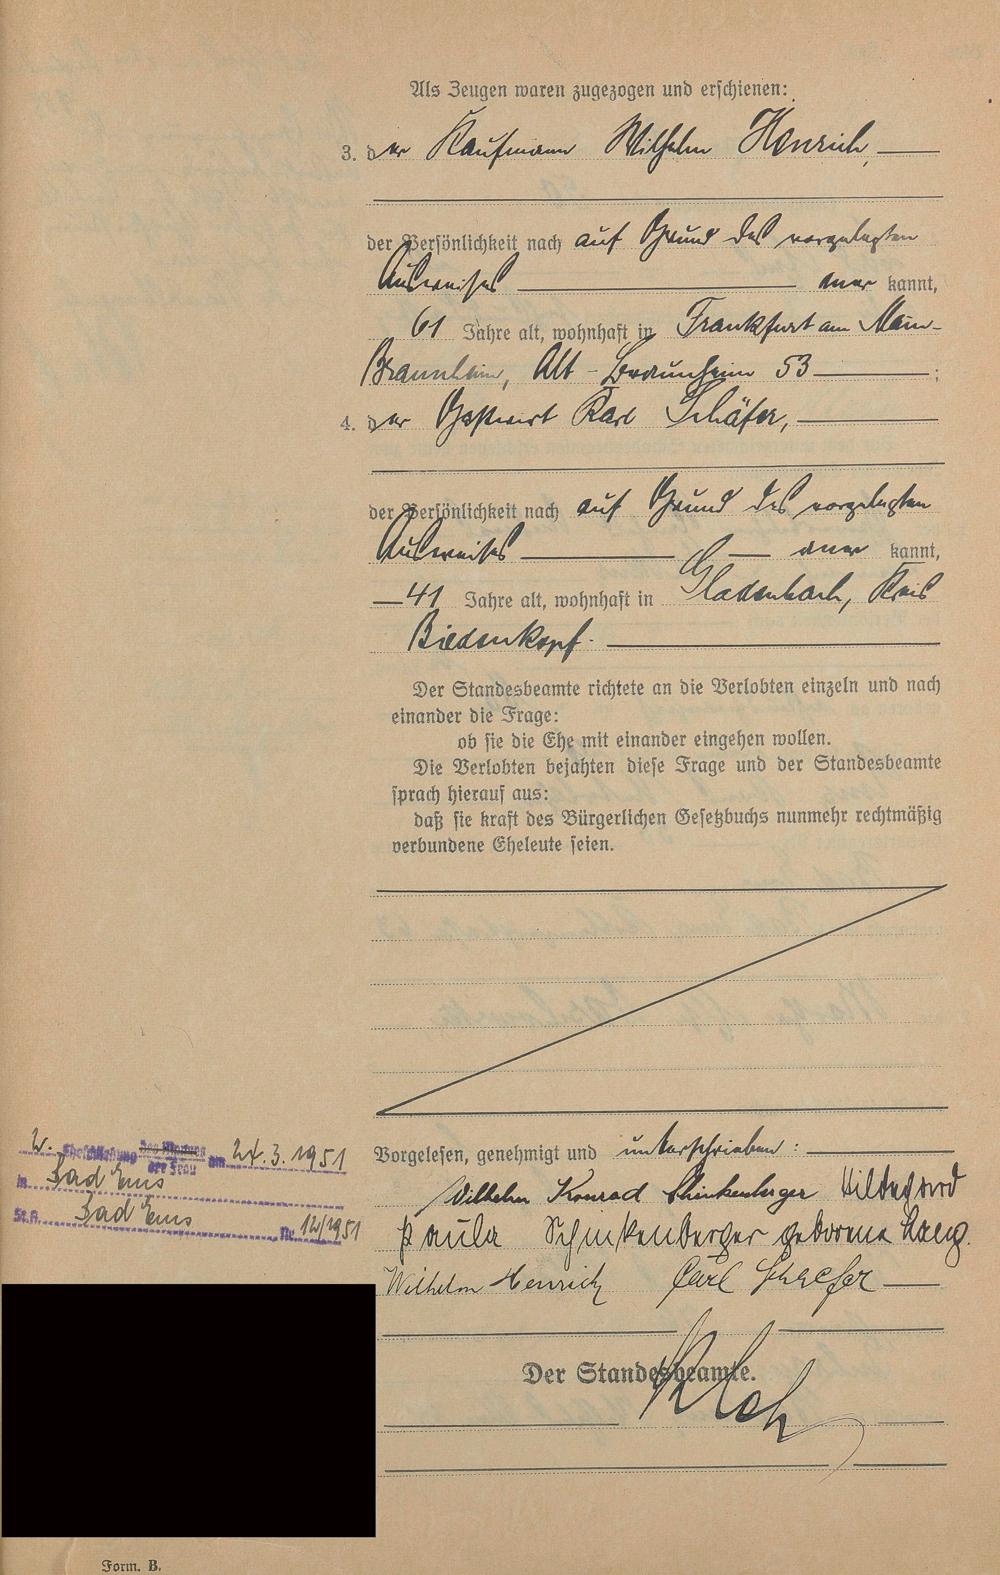 Als Zeugen waren zugezogen und erschienen:
3. der Kaufmann Wilhelm Henrich,
der Persönlichkeit nach auf Grund des vorgelegten
Ausweises aner kannt,
61 Jahre alt, wohnhaft in Frankfurt am Main-
Praunheim, Alt-Praunheim 53 ;
4. der Gastwirt Karl Schäfer,
der Persönlichkeit nach auf Grund des vorgelegten
Ausweises aner kannt,
41 Jahre alt, wohnhaft in Gladenbach, Kreis
Biedenkopf.
Der Standesbeamte richtete an die Verlobten einzeln und nach
einander die Frage:
ob sie die Ehe mit einander eingehen wollen.
Die Verlobten bejahten diese Frage und der Standesbeamte
sprach hierauf aus:
daß sie kraft des Bürgerlichen Gesetzbuchs nunmehr rechtmäßig
verbundene Eheleute seien.
Vorgelesen, genehmigt und unterschrieben:
Wilhelm Konrad Schinkenberger Hildegard
Paula Schinkenberger geborene Lang.
Wilhelm Henrich Carl Schaefer
Der Standesbeamte.
2. Eheschließung des Mannes der Frau am 24.3.1951
in Bad Ems
St.A. Bad Ems Nr. 12/1951
Form. B.